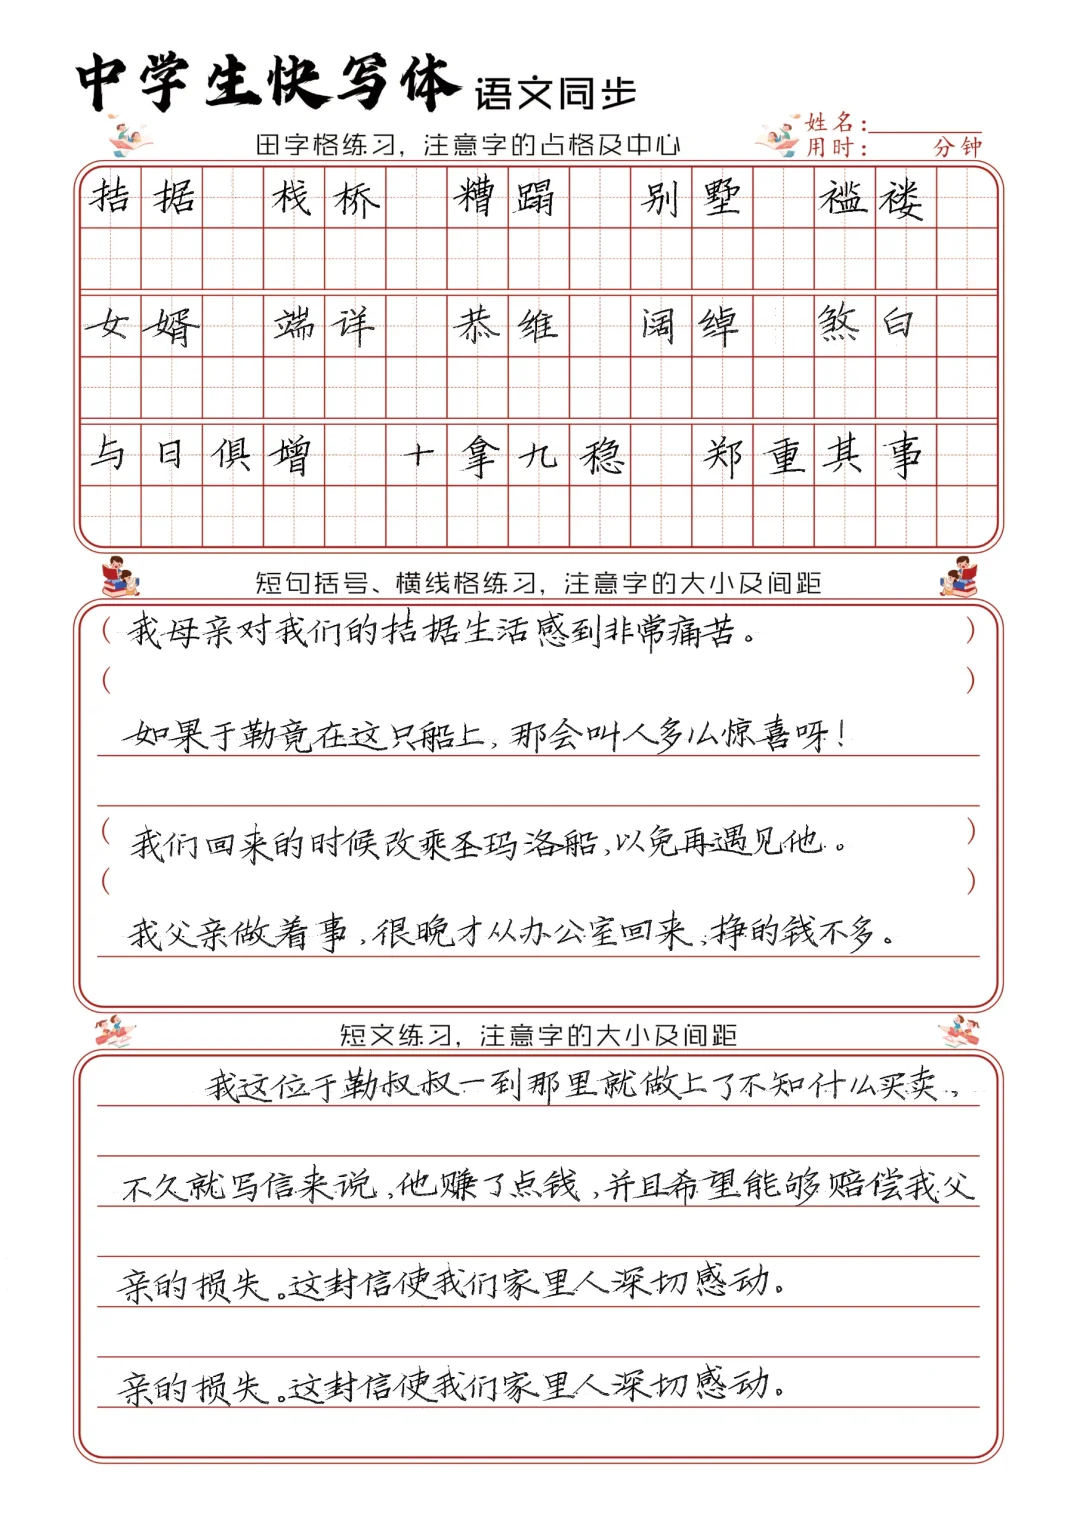 中学生快写体 语文同步
姓名:
田字格练习，注意字的占格及中心
用时: 分钟
拮据 栈桥 糟蹋 别墅 褴褛
女婿 端详 恭维 阔绰 煞白
与日俱增 十拿九稳 郑重其事
短句括号、横线格练习，注意字的大小及间距
( 我母亲对我们的拮据生活感到非常痛苦。 )
( )
如果于勒竟在这只船上，那会叫人多么惊喜呀！
( 我们回来的时候改乘圣玛洛船，以免再遇见他。 )
( )
我父亲做着事，很晚才从办公室回来，挣的钱不多。
短文练习，注意字的大小及间距
我这位于勒叔叔一到那里就做上了不知什么买卖，
不久就写信来说，他赚了点钱，并且希望能够赔偿我父
亲的损失。这封信使我们家里人深切感动。
亲的损失。这封信使我们家里人深切感动。